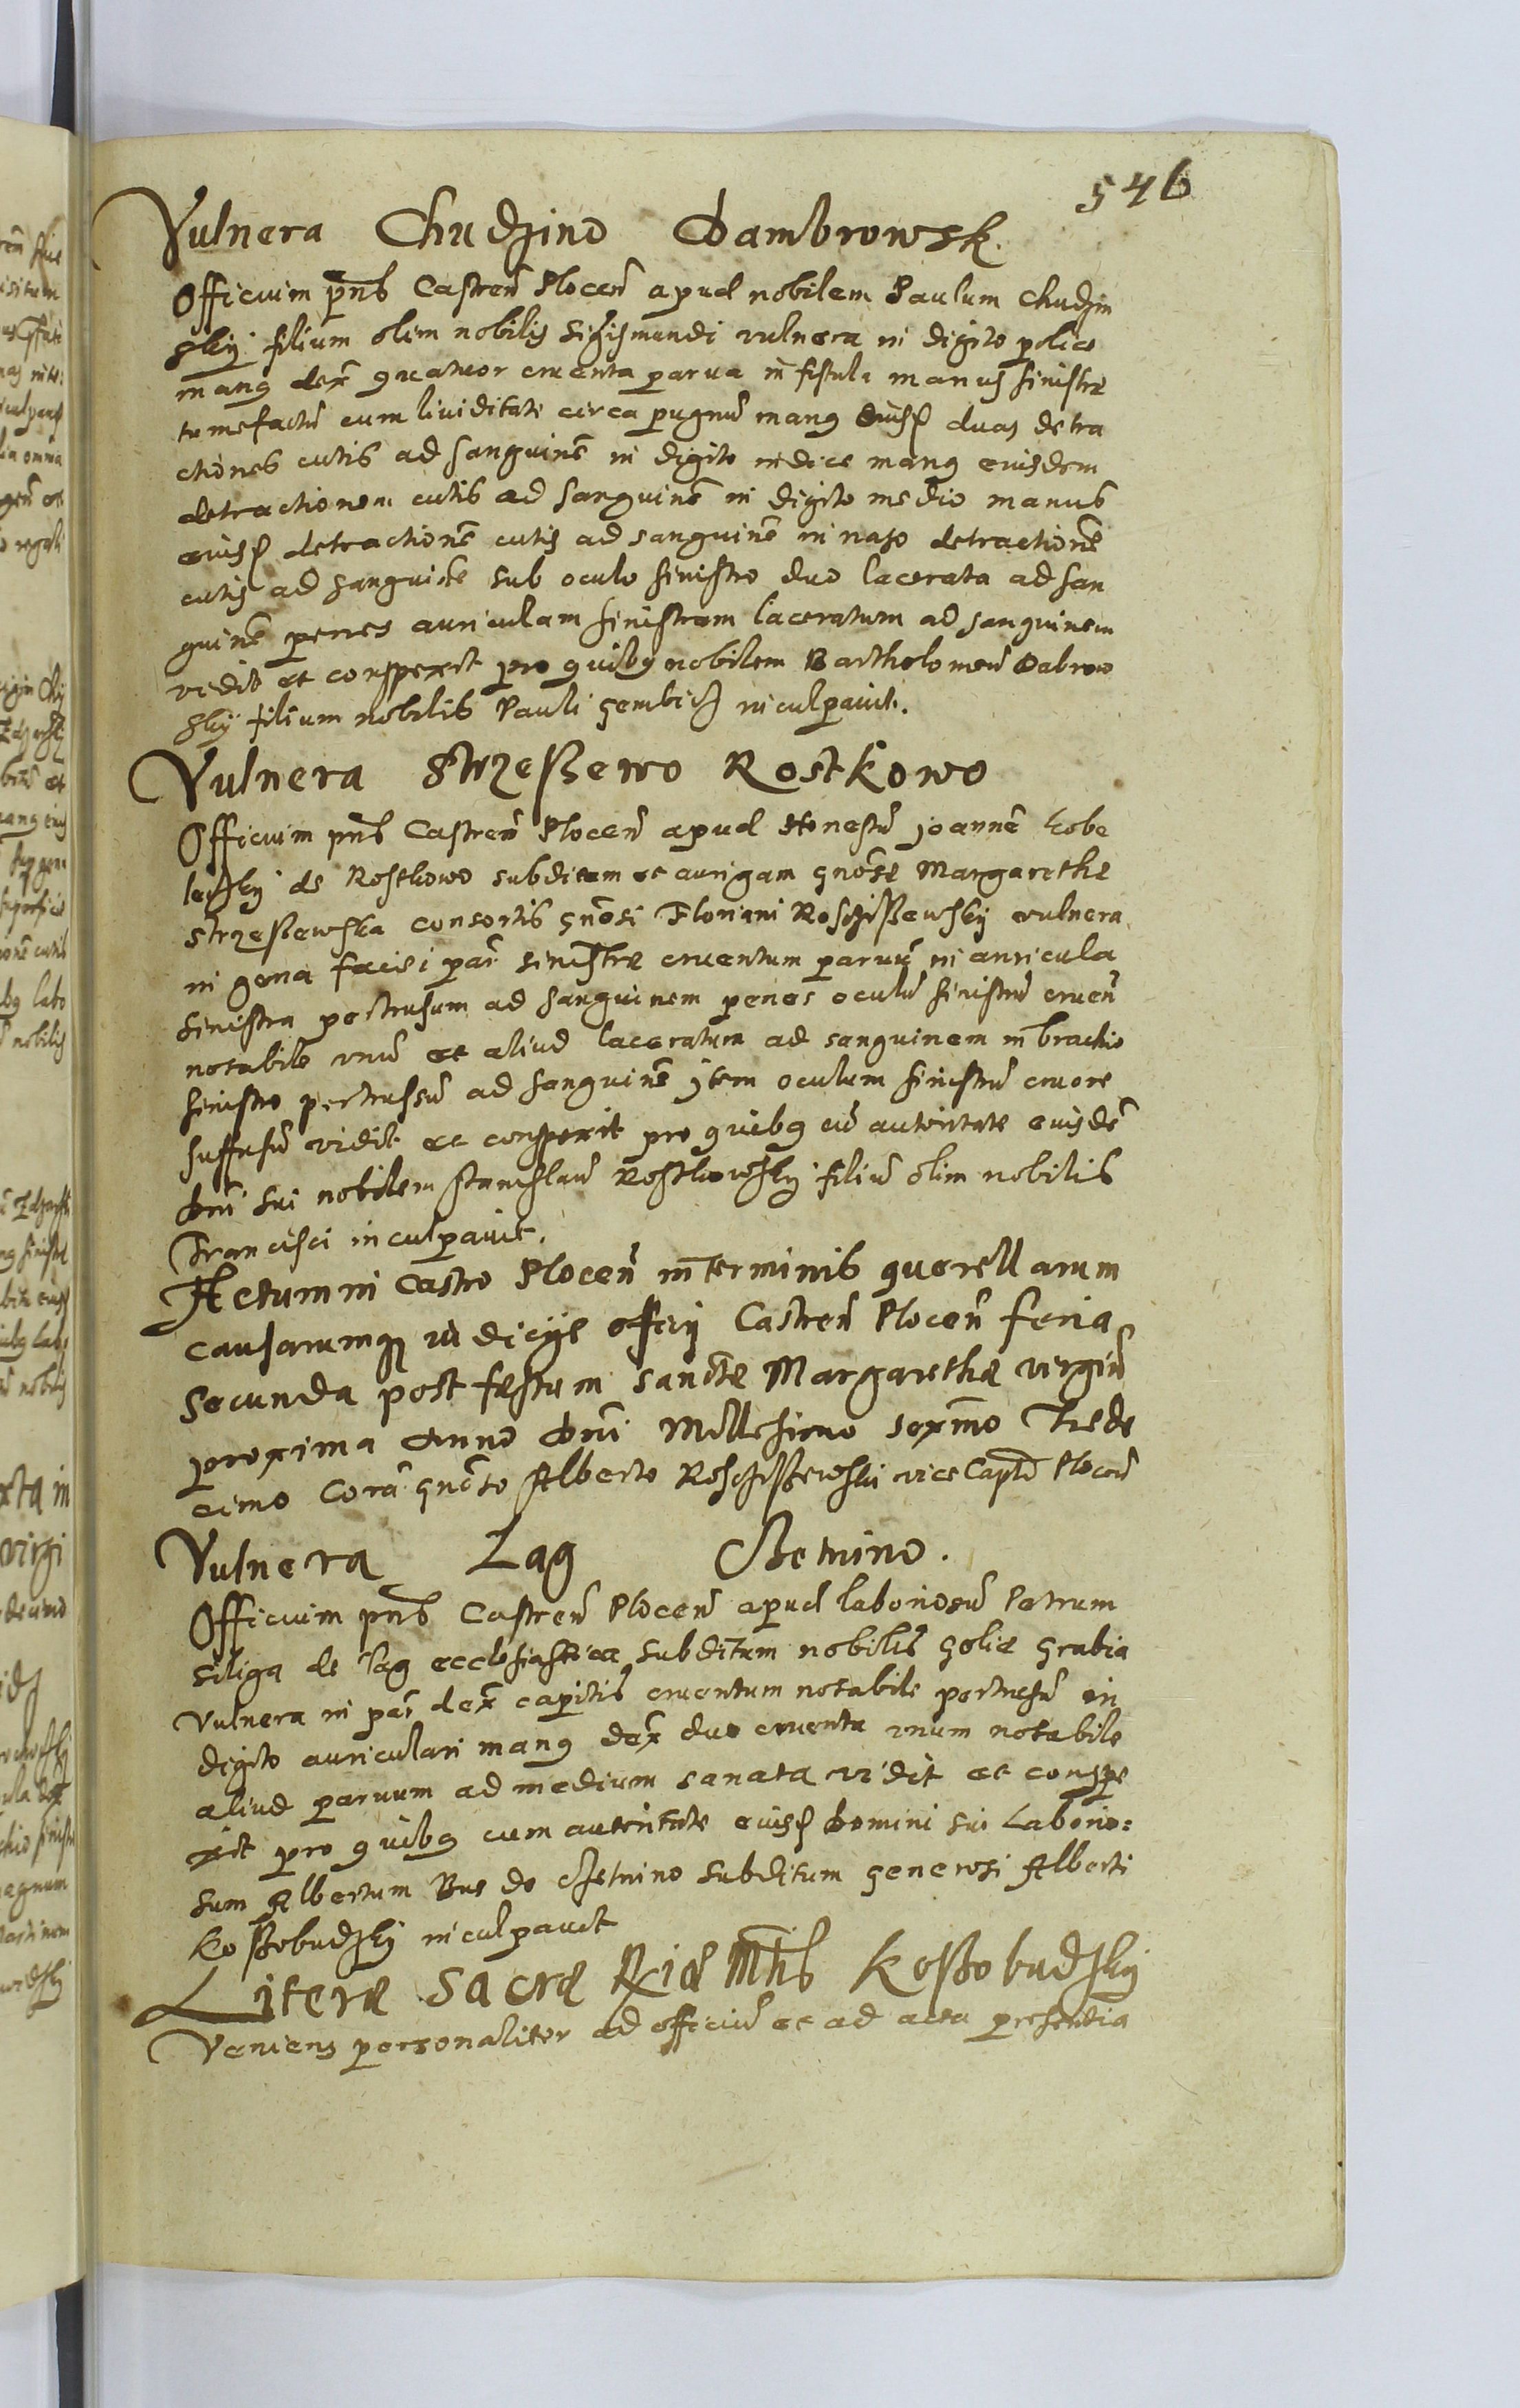 546
Vulnera Chudzino Dambrowsk.
Officium pñs Castreñ Ploceñ apud nobilem Paulum Chudzin
skÿ filium olim nobilis Sigismundi vulnera in digito police
manꝰ dex quatuor cruenta parua in fistula manus sinistre
tumefactũ cum liuiditate circa pugnũ manꝰ eiusd duas detra
ctiones cutis ad sanguinẽ in digito indice manꝰ eiusdem
detractionem cutis ad sanguinẽ in digito medio manus
eiusd detractionẽ cutis ad sanguinẽ in naso detractionẽ
cutis ad sanguinẽ sub oculo sinistro duo lacerata ad san
guinẽ penes auriculam sinistram laceratum ad sanguinem
vidit et conspexit pro quibꝰ nobilem Bartholomeũ Dabrow
skÿ filium nobilis Pauli inculpauit.
Vulnera Strzeßewo Rostkowo
Officium pñs Castreñ Ploceñ apud Honestũ Joannẽ Kobe
de Rostkowo subditum et aurigam gnose Margarethe
Strzeßewska consortis gnosi Floriani Rosczißewskÿ vulnera
in gena faciei par sinistre cruentum paruũ in auricula
sinistra pertrusum ad sanguinem penes oculũ sinistrũ crueñ
notabile vnũ et aliud laceratum ad sanguinem in brachio
sinistro pertrussũ ad sanguinẽ Item oculum sinistrũ cruore
suffusũ vidit et conspexit pro quibꝰ cũ autoritate eiusdẽ
dñi sui nobilem Stanislaũ Rostkowskÿ filiũ olim nobilis
Francisci inculpauit.
Actum in Castro Ploceñ in terminis querellarum
causarumqꝫ iudicijs officij Castreñ Ploceñ feria
secunda post festum sancte Margarethæ virginĩ
proxima Anno dñi Millesimo sexmo Trede
cimo Corã gnoso Alberto Rosczißewski vice Capto Ploceñ
Vulnera Lag Setnino.
Officium pñs Castreñ Ploceñ apud laboriosũ Petrum
Siliga de Lag ecclesiastica subditum nobilis Golie Grabia
vulnera in par dex capitis cruentum notabile pertrusũ in
digito auriculari manꝰ dex duo cruenta vnum notabile
aliud paruum ad medium sanata vidit et conspe
xit pro quibꝰ cum autoritate eiusd domini sui Laborio:
sum Albertum Bus de Setnino subditum generosi Alberti
Koßobudzkÿ inculpauit
Literæ Sacræ Riæ Mtis Koßobudzkÿ
Veniens personaliter ad officiũ et ad acta presentia